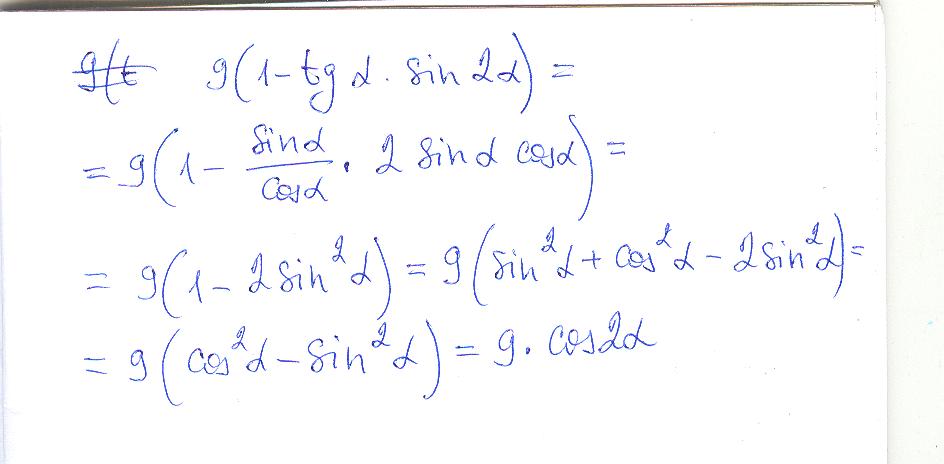 g(1 - tg α · sin 2α) =
= g(1 - sinα/cosα · 2 sinα cosα) =
= g(1 - 2sin²α) = g(sin²α + cos²α - 2sin²α) =
= g(cos²α - sin²α) = g · cos2α